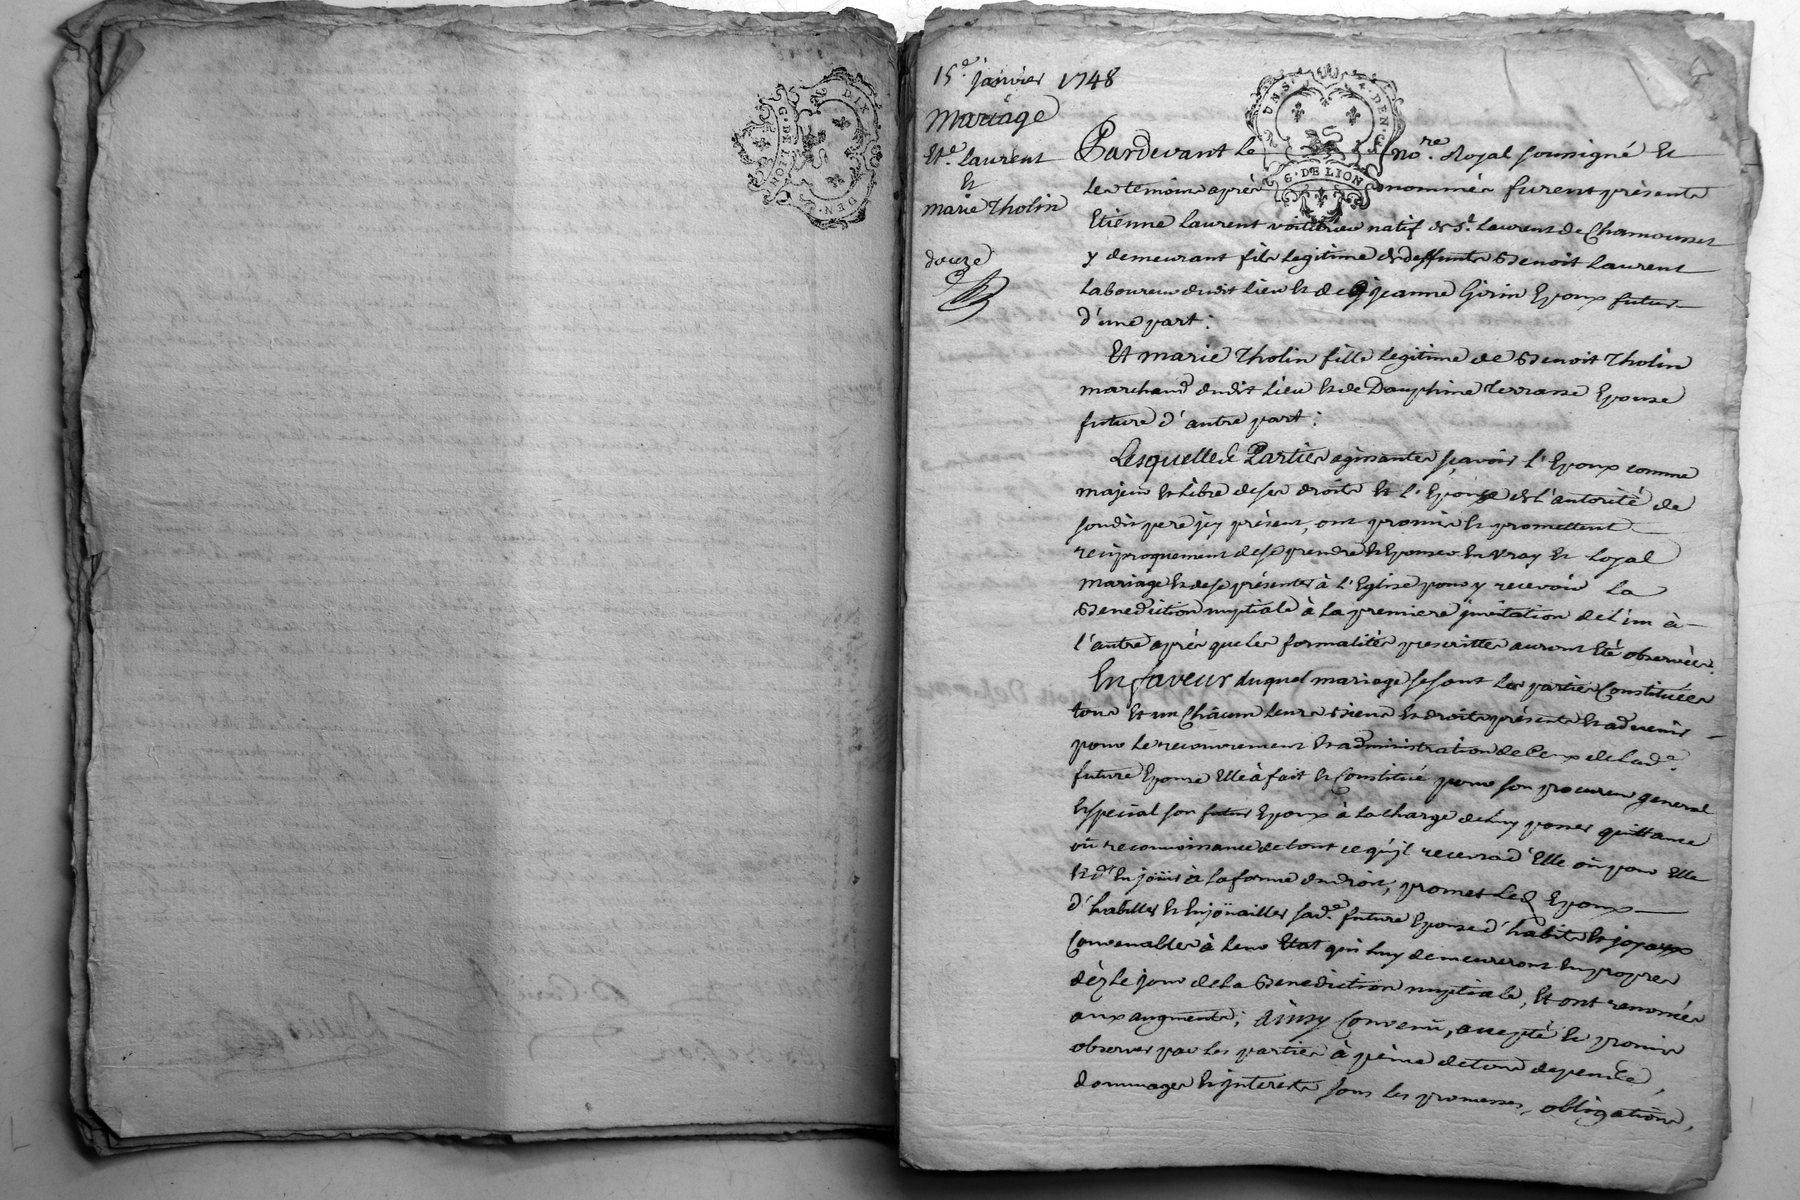 DIX DEN.
G. DE LION
15e. janvier 1748
Mariage
Ete. laurent
Et
marie Tholin
douze
UN S. 4. DEN.
G. DE LION
Pardevant Le nore. Royal soussigné Et
les temoins après nommés furent présents
Etienne Laurent voiturier natif de St. Laurent de Chamousset
y demeurant fils legitime de deffunts Benoit Laurent
Laboureur dudit lieu Et de jeanne Girin Epoux futur
d'une part:
Et marie Tholin fille legitime de Benoit Tholin
marchand dudit Lieu Et de Dauphine Terrasse Epouse
future d'autre part:
Lesquelles Parties agissantes sçavoir L'Epoux comme
majeur Et Libre de ses droits Et l'Epouse de l'autorité de
sondit pere jcy présent, ont promis Et promettent
reciproquement de se prendre Et Epouser En vray Et loyal
mariage Et de se présenter à L'Eglise pour y recevoir La
Benediction nuptiale à La premiere jnvitation de L'un à
l'autre après que les formalités prescrittes auront Eté observées.
En faveur duquel mariage se sont Les parties Constituées
tous Et un Chacun leurs Biens Et droits présents Et advenir
pour Le recouvrement Et administration de Ceux de Lade.
future Epouse Elle à fait Et Constitué pour son procureur general
Et special son futur Epoux à La charge de Luy passer quittance
où reconnoissance de tout ce qu'jl recevra d'Elle où pour Elle
Et d'En joüir à La forme du droit, promet Led. Epoux
d'habiller Et Enjoüailler sade. future Epouse d'habits Et joyaux
Convenables à Leur Etat qui Luy demeureront En propres
dèz Le jour de La Benediction nuptiale, Et ont renoncés
aux augments; Ainsy Convenu, accepté Et promis
observer par Les parties à peine de tous depends,
dommages Et jnterests sous Les promesses, obligations,